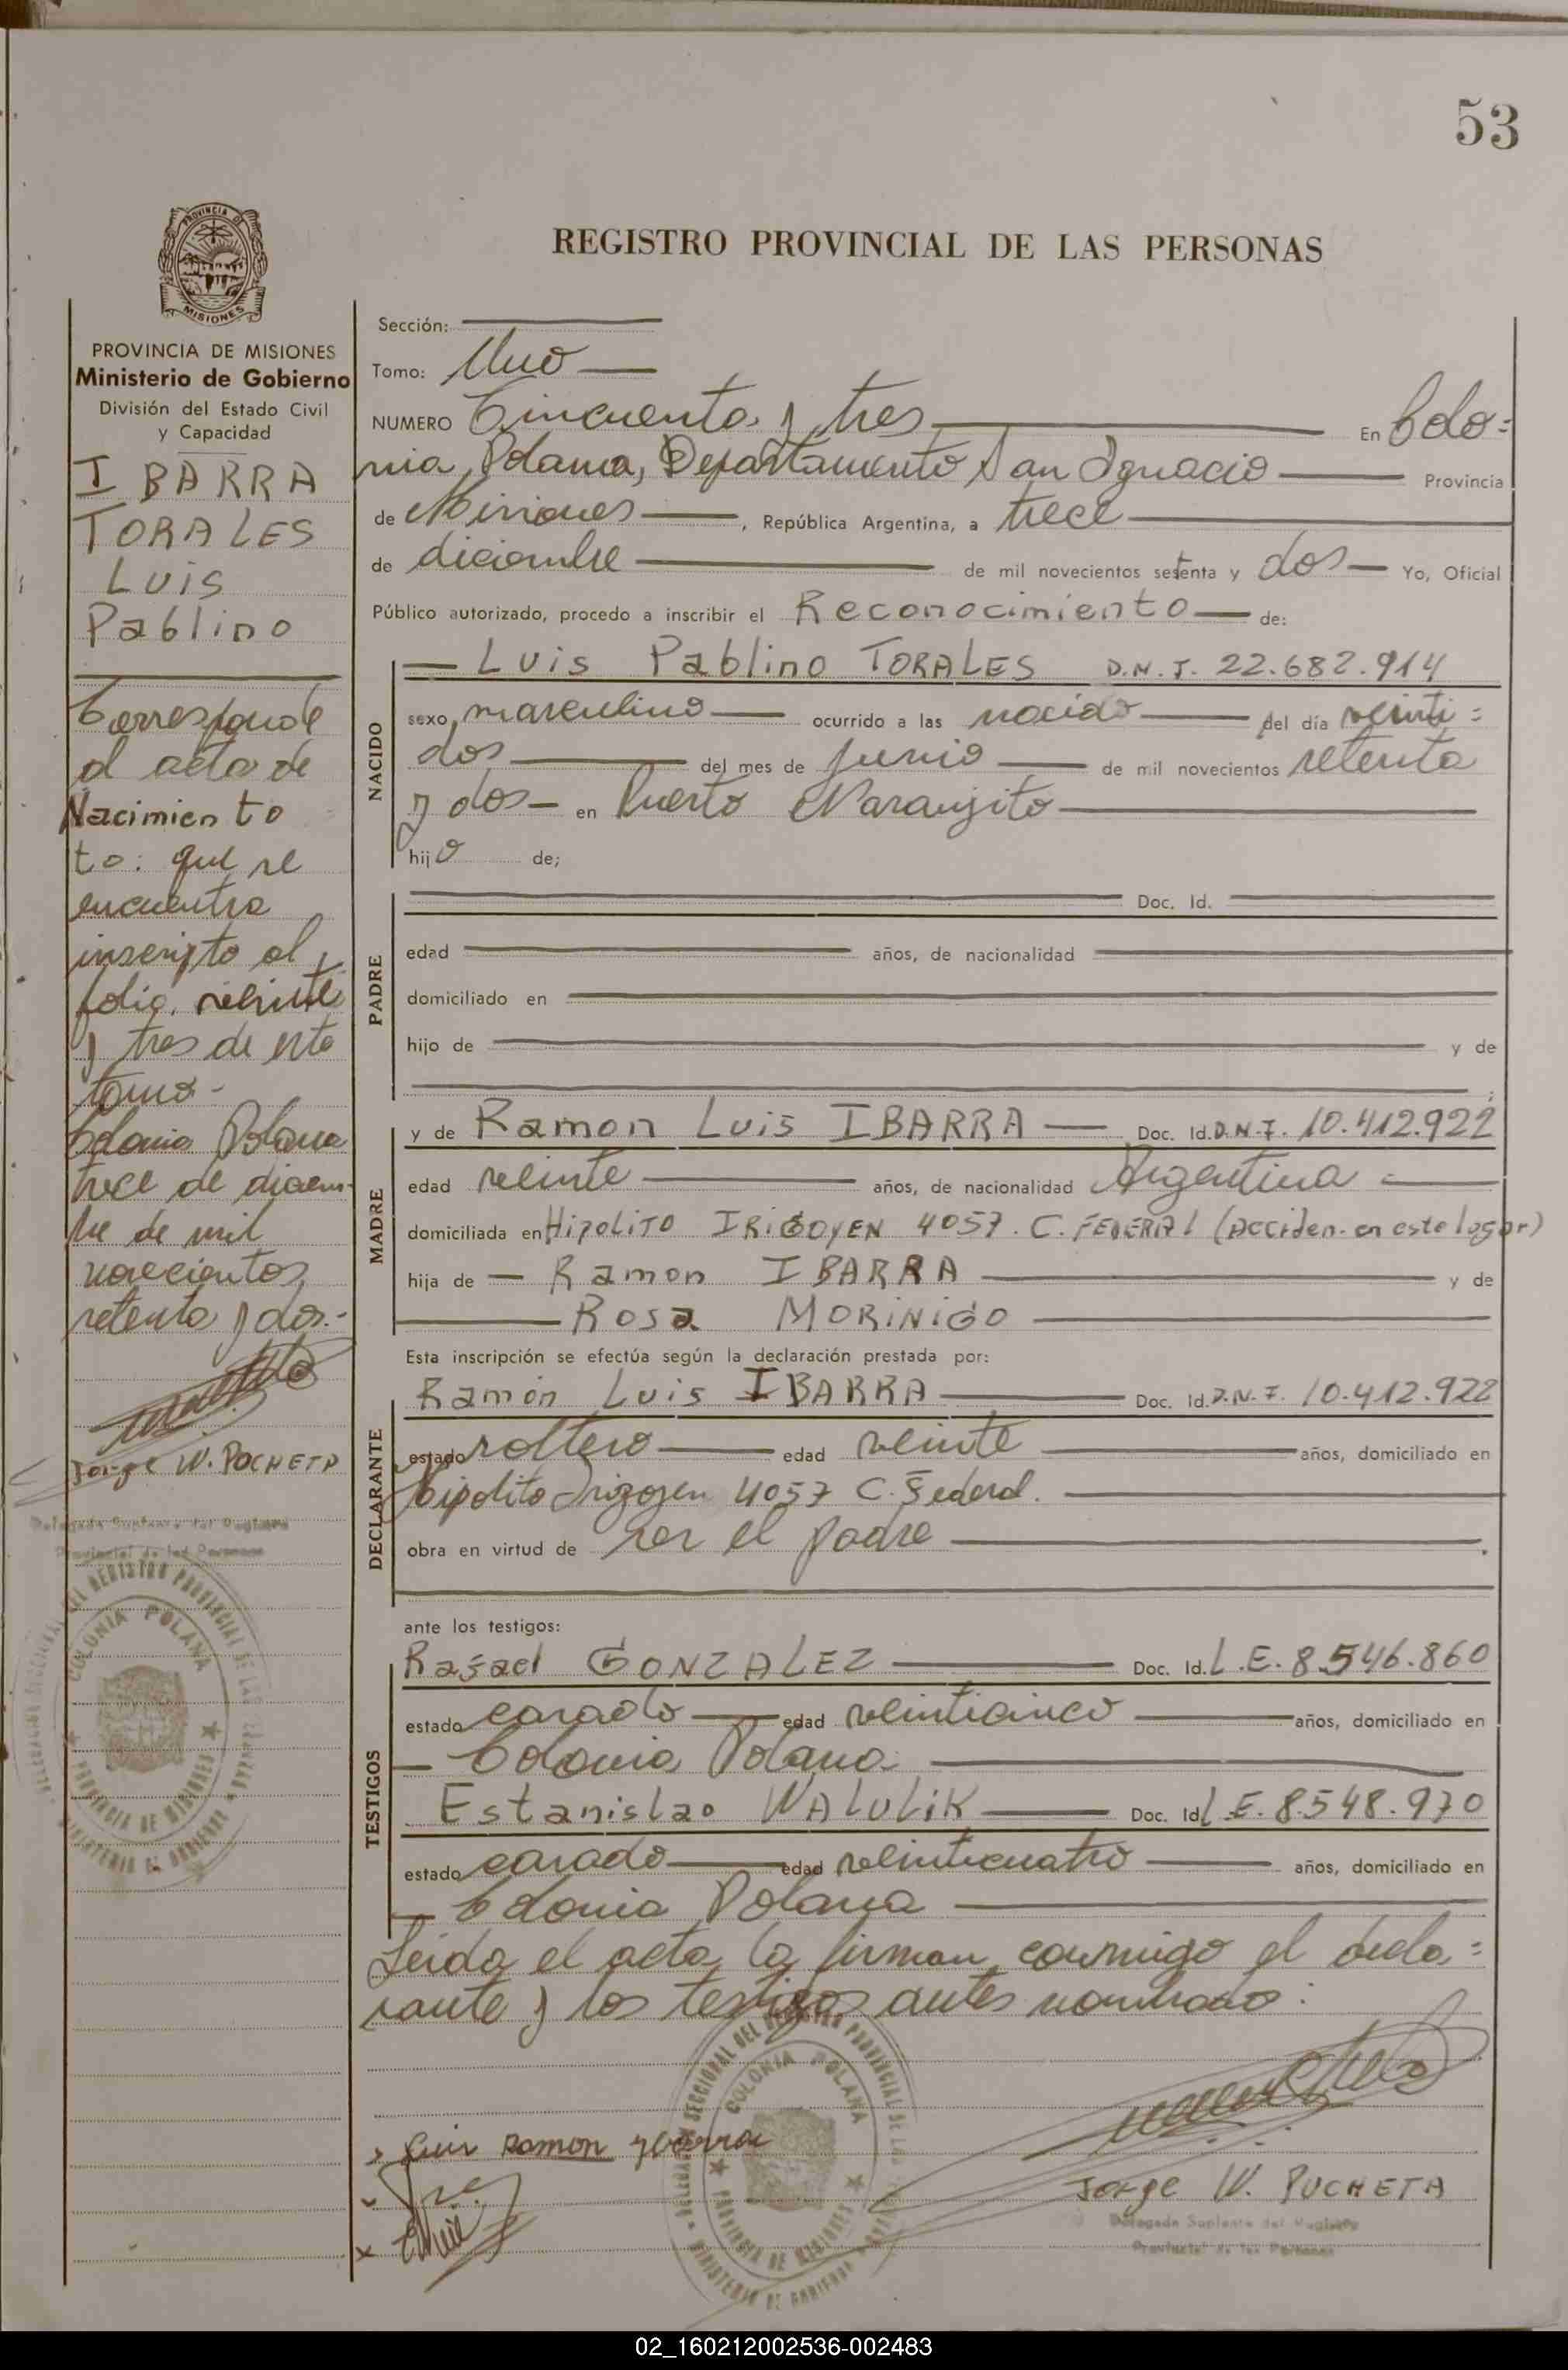 53
PROVINCIA DE
MISIONES
REGISTRO PROVINCIAL DE LAS PERSONAS
PROVINCIA DE MISIONES
Ministerio de Gobierno
División del Estado Civil
y Capacidad
IBARRA
TORALES
Luis
Pablino
Corresponde
al acta de
Nacimiento
to: que se
encuentra
inscripto al
folio, veinte
y tres de este
tomo-
Colonia Polana
trece de diciem-
bre de mil
novecientos
setenta y dos.-
Jorge W. PUCHETA
Delegado Suplente del Registro
Provincial de las Personas
DELEGACION SECCIONAL DEL REGISTRO PROVINCIAL DE LAS PERSONAS
COLONIA POLANA
PROVINCIA DE MISIONES
MINISTERIO DE GOBIERNO
Sección:
Tomo: Uno
NUMERO Cincuenta y tres En Colo=
nia Polana, Departamento San Ignacio Provincia
de Misiones, República Argentina, a trece
de diciembre de mil novecientos setenta y dos Yo, Oficial
Público autorizado, procedo a inscribir el Reconocimiento de:
NACIDO
Luis Pablino TORALES D.N.I. 22.682.914
sexo, masculino ocurrido a las nacido del día veinti=
dos del mes de junio de mil novecientos setenta
y dos en Puerto Naranjito
hijo de;
PADRE
Doc. Id.
edad años, de nacionalidad
domiciliado en
hijo de y de
MADRE
y de Ramon Luis IBARRA Doc. Id. D.N.I. 10.412.922
edad veinte años, de nacionalidad Argentina
domiciliada en Hipolito IRIGOYEN 4057. C. FEDERAL (Acciden. en este lugar)
hija de Ramon IBARRA y de
Rosa MORINIGO
Esta inscripción se efectúa según la declaración prestada por:
DECLARANTE
Ramón Luis IBARRA Doc. Id. D.N.I. 10.412.922
estado soltero edad veinte años, domiciliado en
Hipolito Irigoyen 4057 C. Federal.
obra en virtud de ser el padre
ante los testigos:
TESTIGOS
Rafael GONZALEZ Doc. Id. L.E. 8.546.860
estado casado edad veinticinco años, domiciliado en
Colonia Polana
Estanislao WALULIK Doc. Id. L.E. 8.548.970
estado casado edad veinticuatro años, domiciliado en
Colonia Polana
Leida el acta la firman conmigo el decla=
rante y los testigos antes nombrado:
Luis Ramon Ybarra
DELEGACION SECCIONAL DEL REGISTRO PROVINCIAL DE LAS PERSONAS
COLONIA POLANA
PROVINCIA DE MISIONES
MINISTERIO DE GOBIERNO
Jorge W. PUCHETA
Delegado Suplente del Registro
Provincial de las Personas
02_160212002536-002483